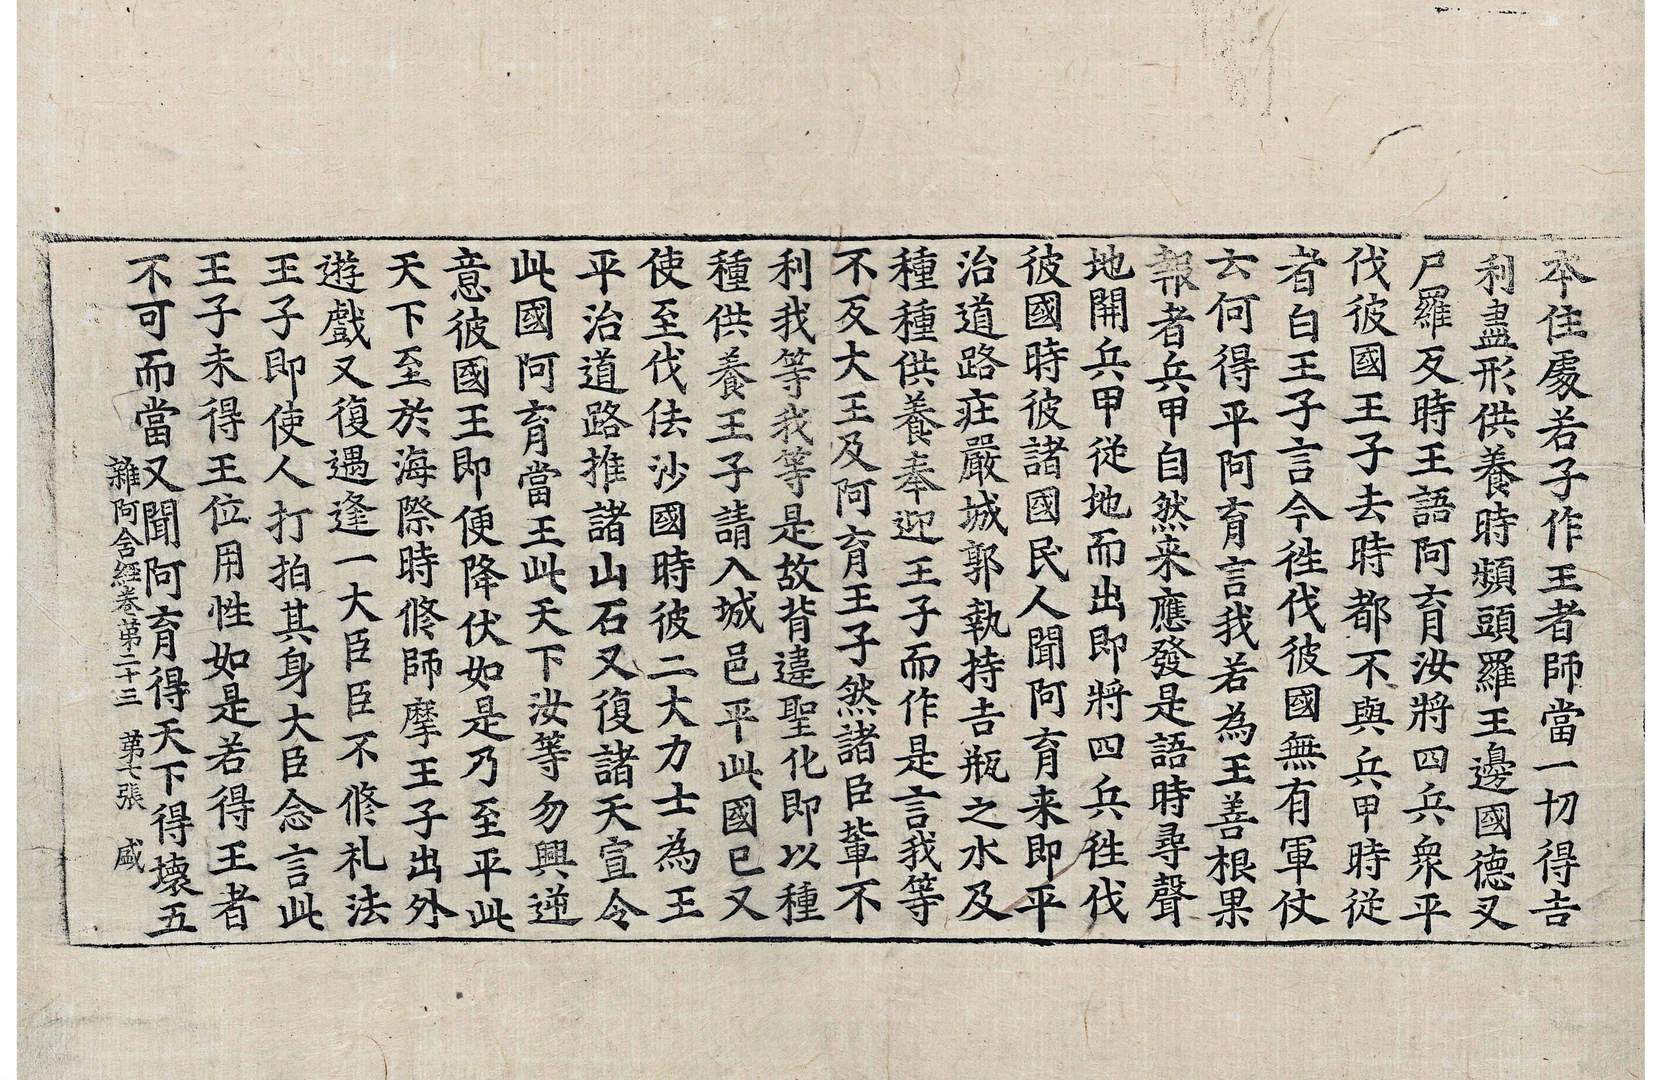 本住處若子作王者師當一切得吉
利盡形供養時頻頭羅王邊國德叉
尸羅反時王語阿育汝將四兵衆平
伐彼國王子去時都不與兵甲時從
者白王子言今徃伐彼國無有軍仗
云何得平阿育言我若為王善根果
報者兵甲自然来應發是語時尋聲
地開兵甲從地而出即將四兵徃伐
彼國時彼諸國民人聞阿育来即平
治道路莊嚴城郭執持吉瓶之水及
種種供養奉迎王子而作是言我等
不反大王及阿育王子然諸臣輩不
利我等我等是故背違聖化即以種
種供養王子請入城邑平此國已又
使至伐佉沙國時彼二大力士為王
平治道路推諸山石又復諸天宣令
此國阿育當王此天下汝等勿興逆
意彼國王即便降伏如是乃至平此
天下至於海際時修師摩王子出外
遊戲又復遇逢一大臣臣不修礼法
王子即使人打拍其身大臣念言此
王子未得王位用性如是若得王者
不可而當又聞阿育得天下得壞五
雜阿含經卷第二十三 第七張 盛